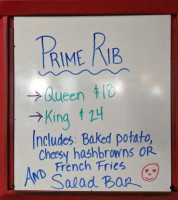 PRIME RIB
→ Queen $18
→ King $24
Includes: Baked potato,
cheesy hashbrowns OR
French Fries
AND Salad BAR